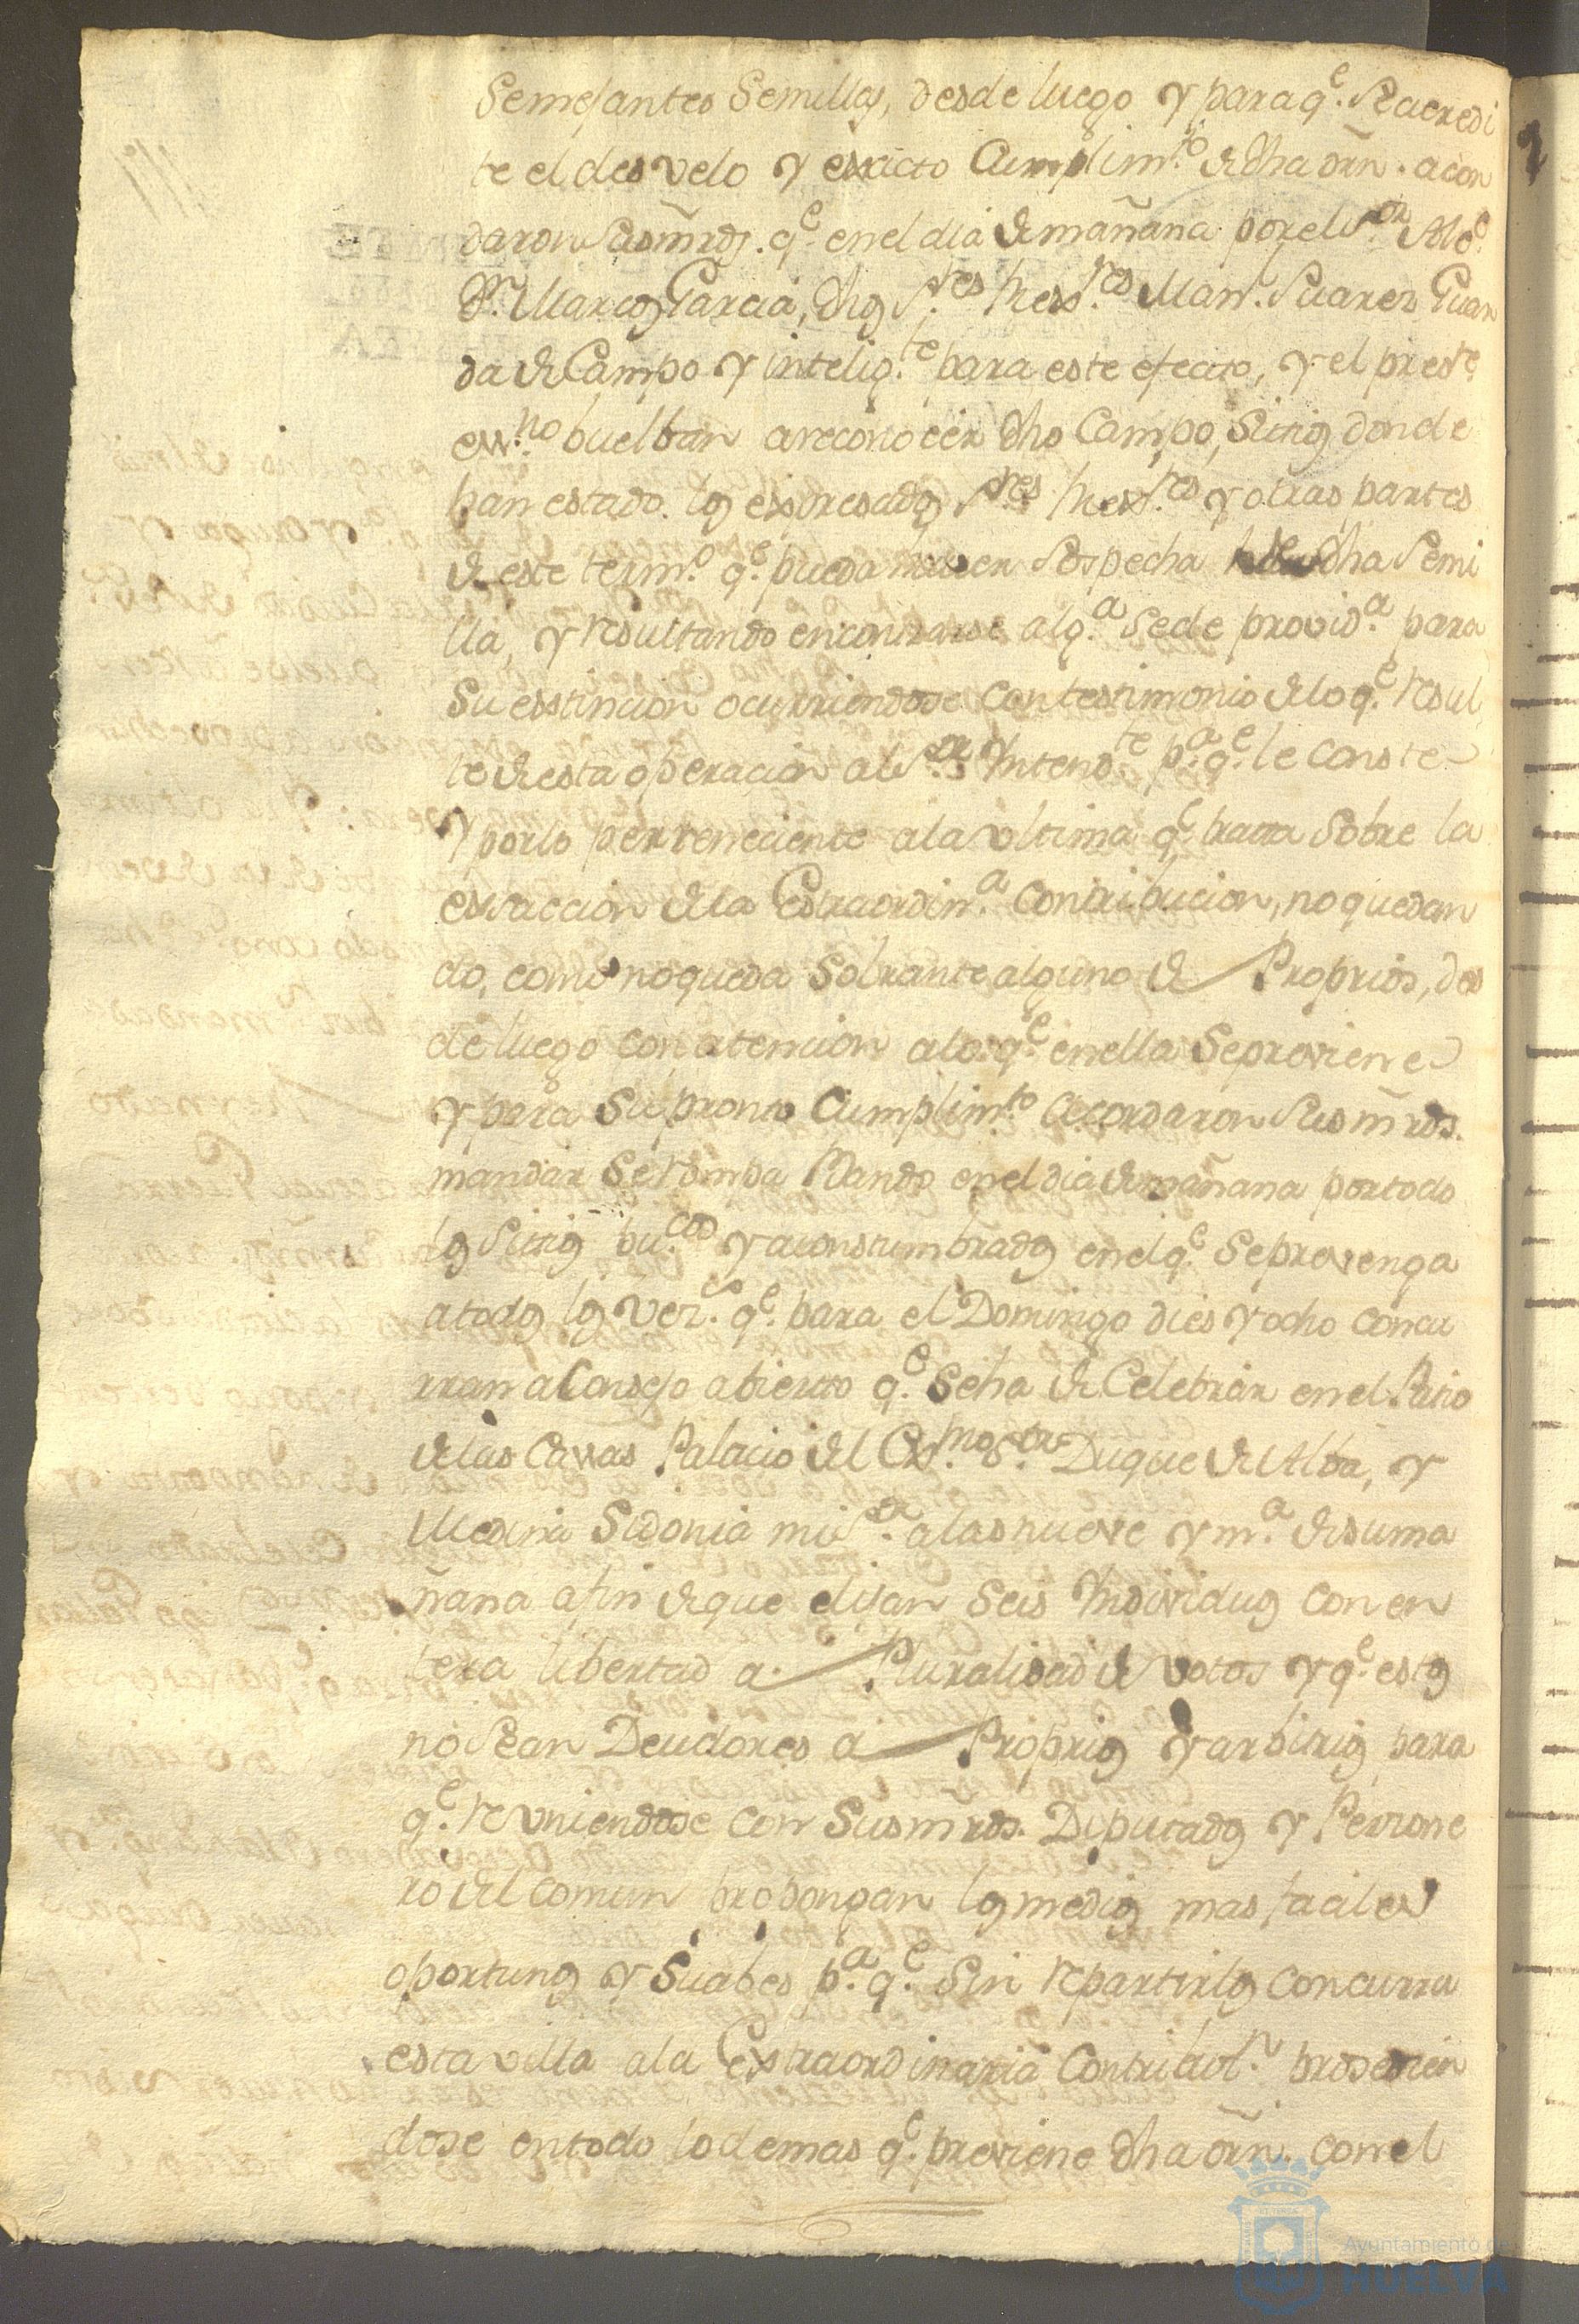 Semejantes Semillas, desde luego y para q.e Se acredi
te el desvelo y exacto Cumplim.to de dha orn. acor
daron Sus mrds. q.e en el dia de mañana por el S.or Alc.e
D.n Marcos Garcia, dhos S.res Man.l Suarez Guar
da de Campo y intelig.te para este efecto, y el pres.te
ess.no buelban a reconocer dho Campo, Sitios donde
han estado los expresados S.res y otras partes
de este term.o q.e pueda haver Sospecha dha Semi
lla, y resultando encontrarse alg.a Se de provid.a para
Su esstincion ocurriendose con testimonio de lo q.e resul
te de esta operacion al S.or Intend.te p.a q.e le conste
Y por lo perteneciente a la vltima q.e trata Sobre la
essaccion de la Estraordin.a Contribucion, no quedan
do, como no queda Sobrante alguno de Proprios, des
de luego con atencion a lo q.e en ella Se previene
y para Su pronto Cumplim.to acordaron Sus mrds.
mandar Se rompa Vando en el dia de mañana por todo
los Sitios pu.cos y acostumbrados en el q.e Se prevenga
a todos los vez.s q.e para el Domingo dies y ocho concu
rran a Consejo abierto q.e Se ha de Celebrar en el Patio
de las Casas Palacio del Ex.mo S.or Duque de Alba, y
Medina Sidonia mi S.or a las nueve y m.a de su ma
ñana a fin de que elijan Seis Individuos con en
tera libertad a Pluralidad de votos y q.e estos
no Sean Deudores a Proprios y arbitrios para
q.e reuniendose con Sus mrds. Diputados y Perzone
ro del comun propongan los medios mas faciles
oportunos y Suabes p.a q.e Sin repartirlos concurra
esta villa a la Extraordinaria Contribu.n prosedien
dose en todo lo demas q.e previene dha orn. con el
Ayuntamiento de
HUELVA